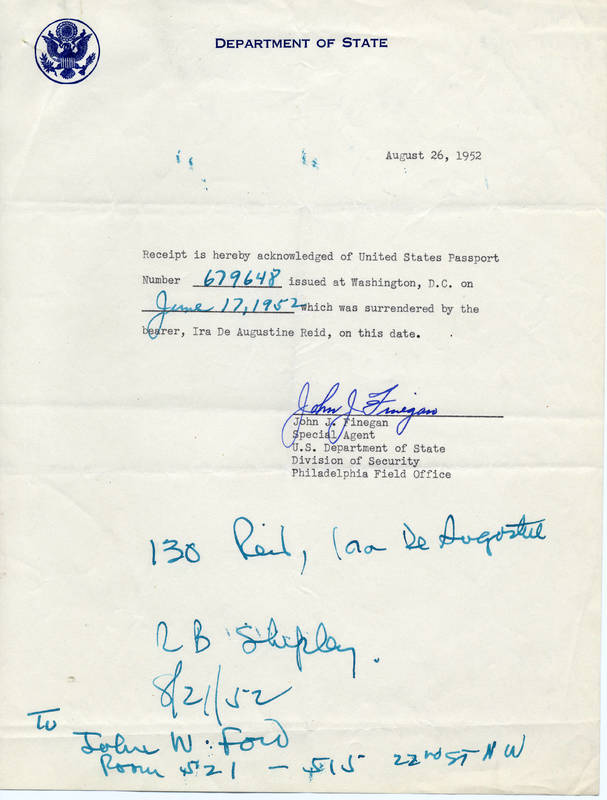 DEPARTMENT OF STATE
August 26, 1952
Receipt is hereby acknowledged of United States Passport
Number 679648 issued at Washington, D.C. on
June 17, 1952 which was surrendered by the
bearer, Ira De Augustine Reid, on this date.
John J Finegan
John J. Finegan
Special Agent
U.S. Department of State
Division of Security
Philadelphia Field Office
130 Reid, Ira De Augustine
R B Shipley.
8/21/52
To
John W. Ford
Room 521 - 515 22nd ST N W